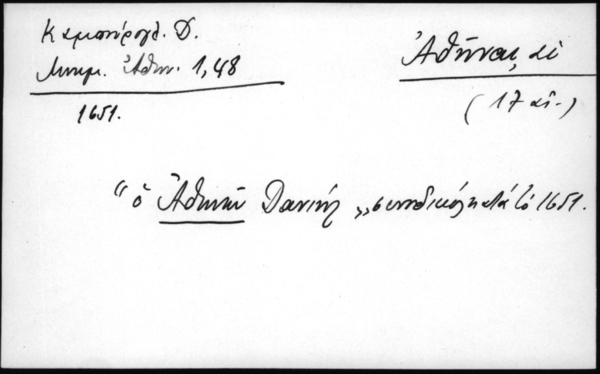 Καμπούρογλ. Δ.
Μνημ. Ἀθην. 1,48
1651.
Ἀθῆναι, αἱ
(17 αἰ.)
"ὁ Ἀθηνῶν Δανιήλ „ συνοδικῶς κατὰ τὸ 1651.